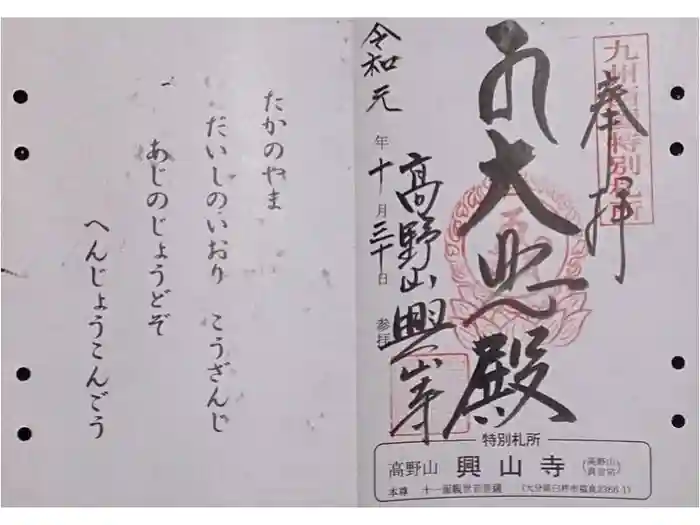 九州西国特別札所
奉拝
大悲殿
高野山興山寺
令和元年十月三十日参拝
特別札所
高野山 興山寺 (高野山真言宗)
本尊 十一面観世音菩薩
たかのやま
だいしのいおり こうざんじ
あじのじょうどぞ
へんじょうこんごう